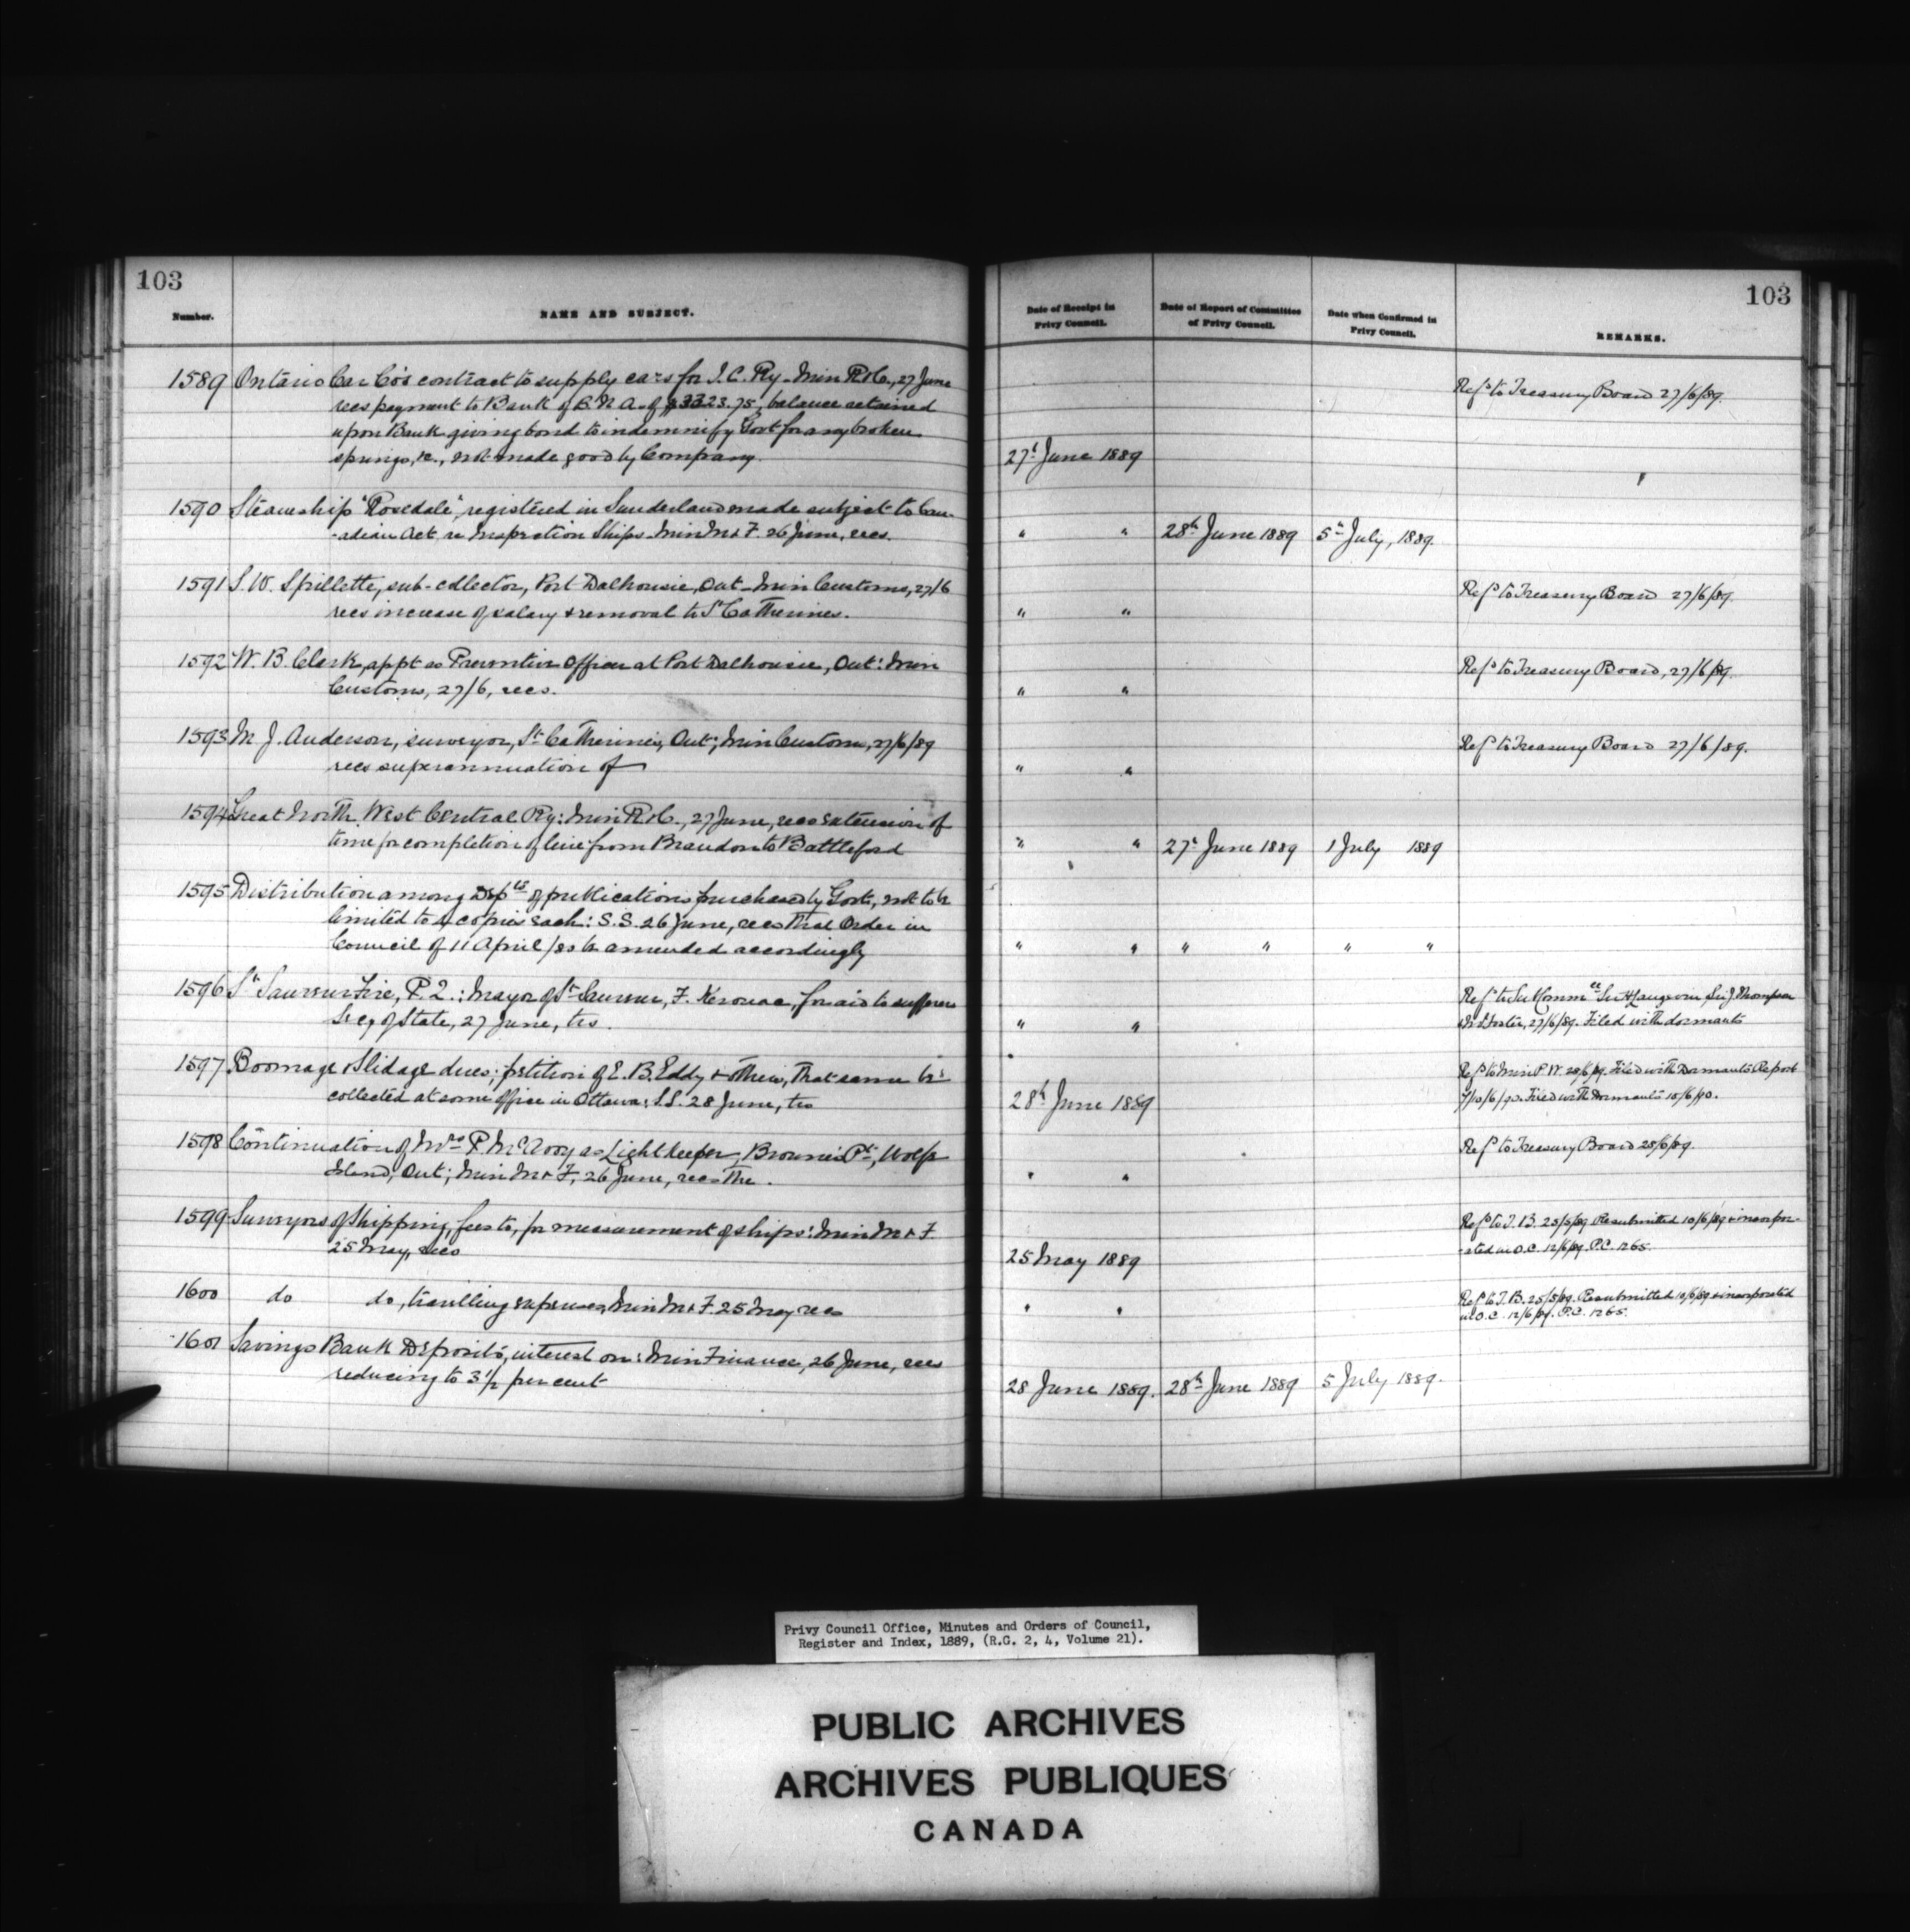 103
Number.
NAME AND SUBJECT.
1589 Ontario Car Co's contract to supply cars for I. C. Ry - Min R & C., 27 June
recs payment to Bank of B. N. A. of $3323.75, balance retained
upon Bank giving bond to indemnify Govt for any broken
springs, &c., not made good by Company.
1590 Steamship "Rosedale", registered in Sunderland made subject to Can-
-adian Act re Inspection Ships - Min M & F. 26 June, recs.
1591 S. W. Spillette, sub-collector, Port Dalhousie, Ont - Min Customs, 27/6
recs increase of salary & removal to St Catherines.
1592 W. B. Clark, appt as Preventive Officer at Port Dalhousie, Ont: Min
Customs, 27/6, recs.
1593 M. J. Anderson, surveyor, St Catherines, Ont; Min Customs, 27/6/89
recs superannuation of
1594 Great North West Central Ry: Min R & C., 27 June, recs extension of
time for completion of line from Brandon to Battleford
1595 Distribution among Depts of publications purchased by Govt, not to be
limited to 4 copies each: S.S. 26 June, recs that Order in
Council of 11 April /80 be amended accordingly
1596 St Sauveur Fire, P. Q.: Mayor of St Sauveur, F. Kerouac, for aid to sufferers
Secy of State, 27 June, trs.
1597 Boomage & Slidage dues; petition of E. B. Eddy & others, that same be
collected at some office in Ottawa: S.S. 28 June, trs
1598 Continuation of Mrs P. McAvoy as Light Keeper, Browns Pt, Wolfe
Island, Ont; Min M & F, 26 June, recs the.
1599 Surveyors of Shipping, fees to, for measurement of ships: Min M & F
25 May, recs
1600 do do, travelling expenses, Min M & F. 25 May recs
1601 Savings Bank Deposits, interest on: Min Finance, 26 June, recs
reducing to 3½ per cent
103
Date of Receipt in
Privy Council.
Date of Report of Committee
of Privy Council.
Date when Confirmed in
Privy Council.
REMARKS.
Refd to Treasury Board 27/6/89.
27th June 1889
" " 28th June 1889 5th July, 1889.
Refd to Treasury Board 27/6/89.
" "
Refd to Treasury Board, 27/6/89.
" "
Refd to Treasury Board 27/6/89.
" "
" " 27th June 1889 1 July 1889
" " " " " "
Refd to Sub Commee Sir H Langevin, Sir J Thompson
Mr Foster, 27/6/89. Filed with dormants
" "
Refd to Min P. W. 28/6/89. Filed with Dormants Report
10/6/90. Filed with Dormants 18/6/90.
28th June 1889
Refd to Treasury Board 28/6/89.
" "
Refd to T. B. 25/5/89 Resubmitted 10/6/89 & incorpor-
-ated in O.C. 12/6/89. P.C. 1265.
25 May 1889
Refd to T. B. 25/5/89. Resubmitted 10/6/89 & incorporated
in O.C. 12/6/89. P.C. 1265.
" "
28 June 1889. 28th June 1889 5 July 1889.
Privy Council Office, Minutes and Orders of Council,
Register and Index, 1889, (R.G. 2, 4, Volume 21).
PUBLIC ARCHIVES
ARCHIVES PUBLIQUES
CANADA